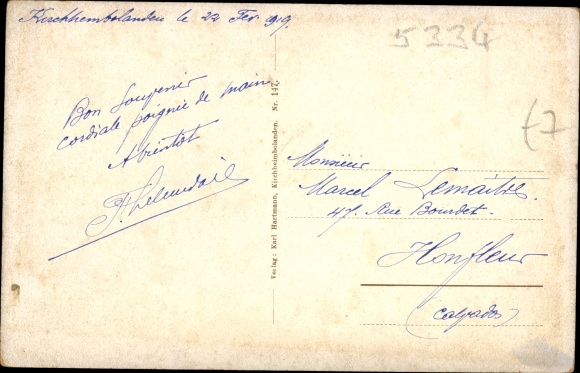 Kirchheimbolanden le 22 Fev 1919.
5334
Bon Souvenir
cordiale poignée de main
A bientôt
47
Verlag: Karl Hartmann, Kirchheimbolanden. Nr. 147.
Monsieur
Marcel Lemaître.
47. Rue Bourdet.
Honfleur
(Calvados)